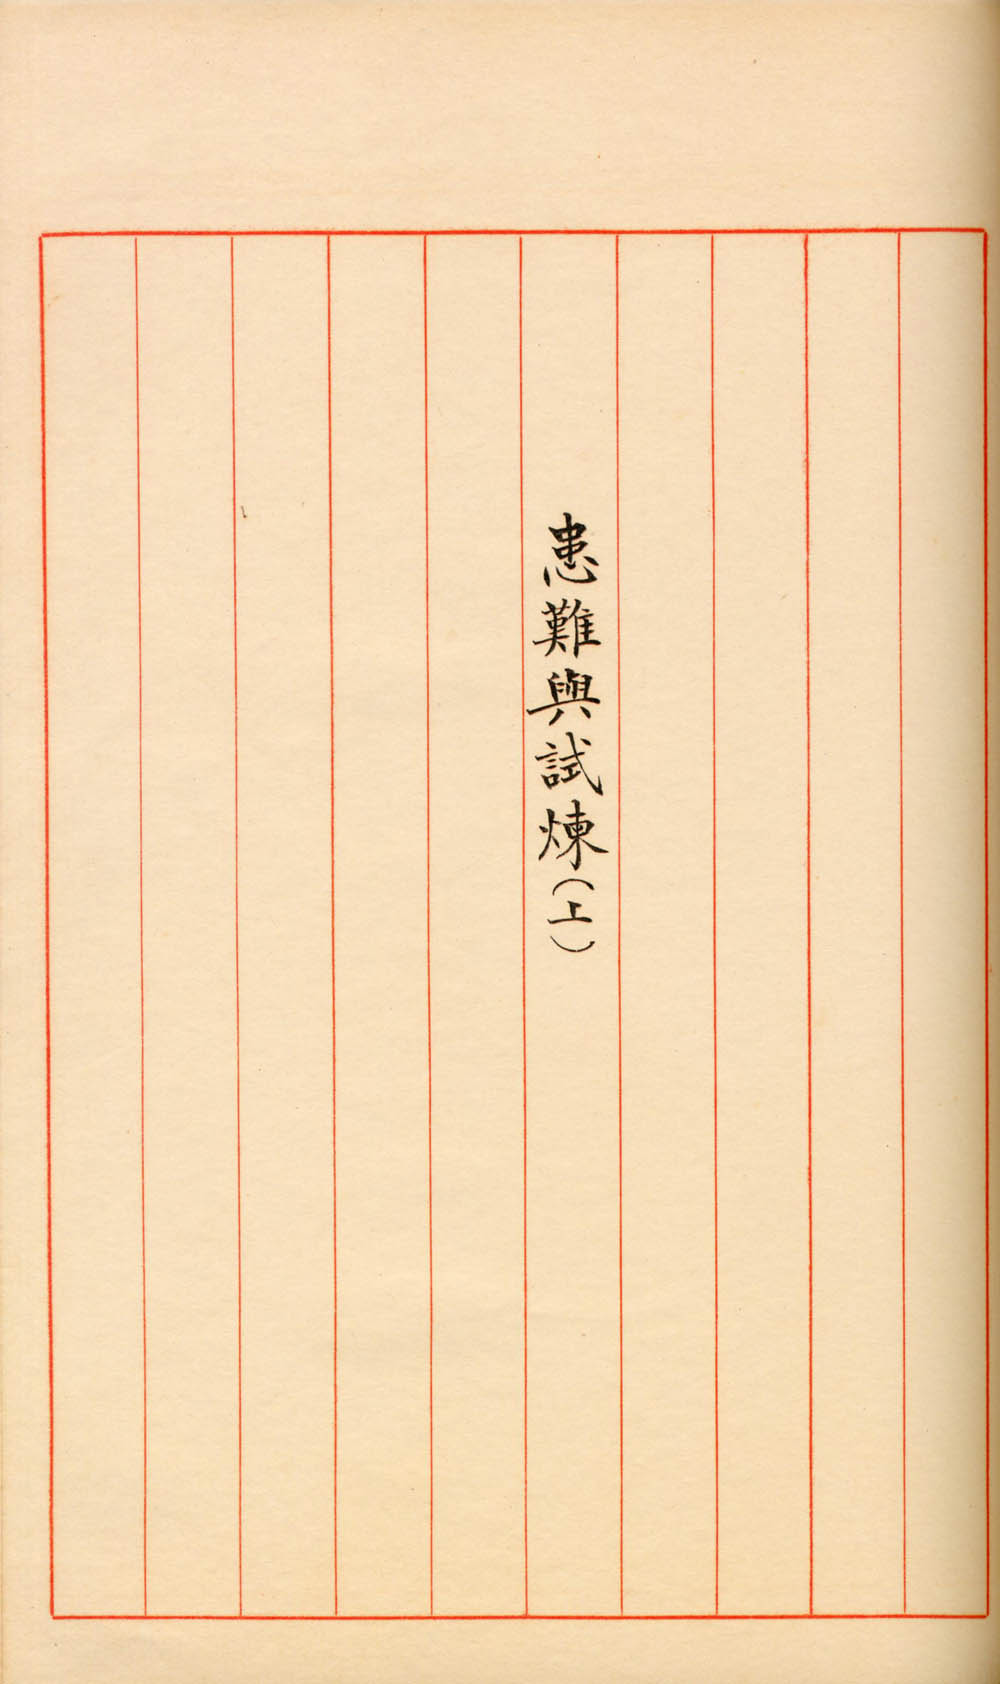 患難與試煉(上)